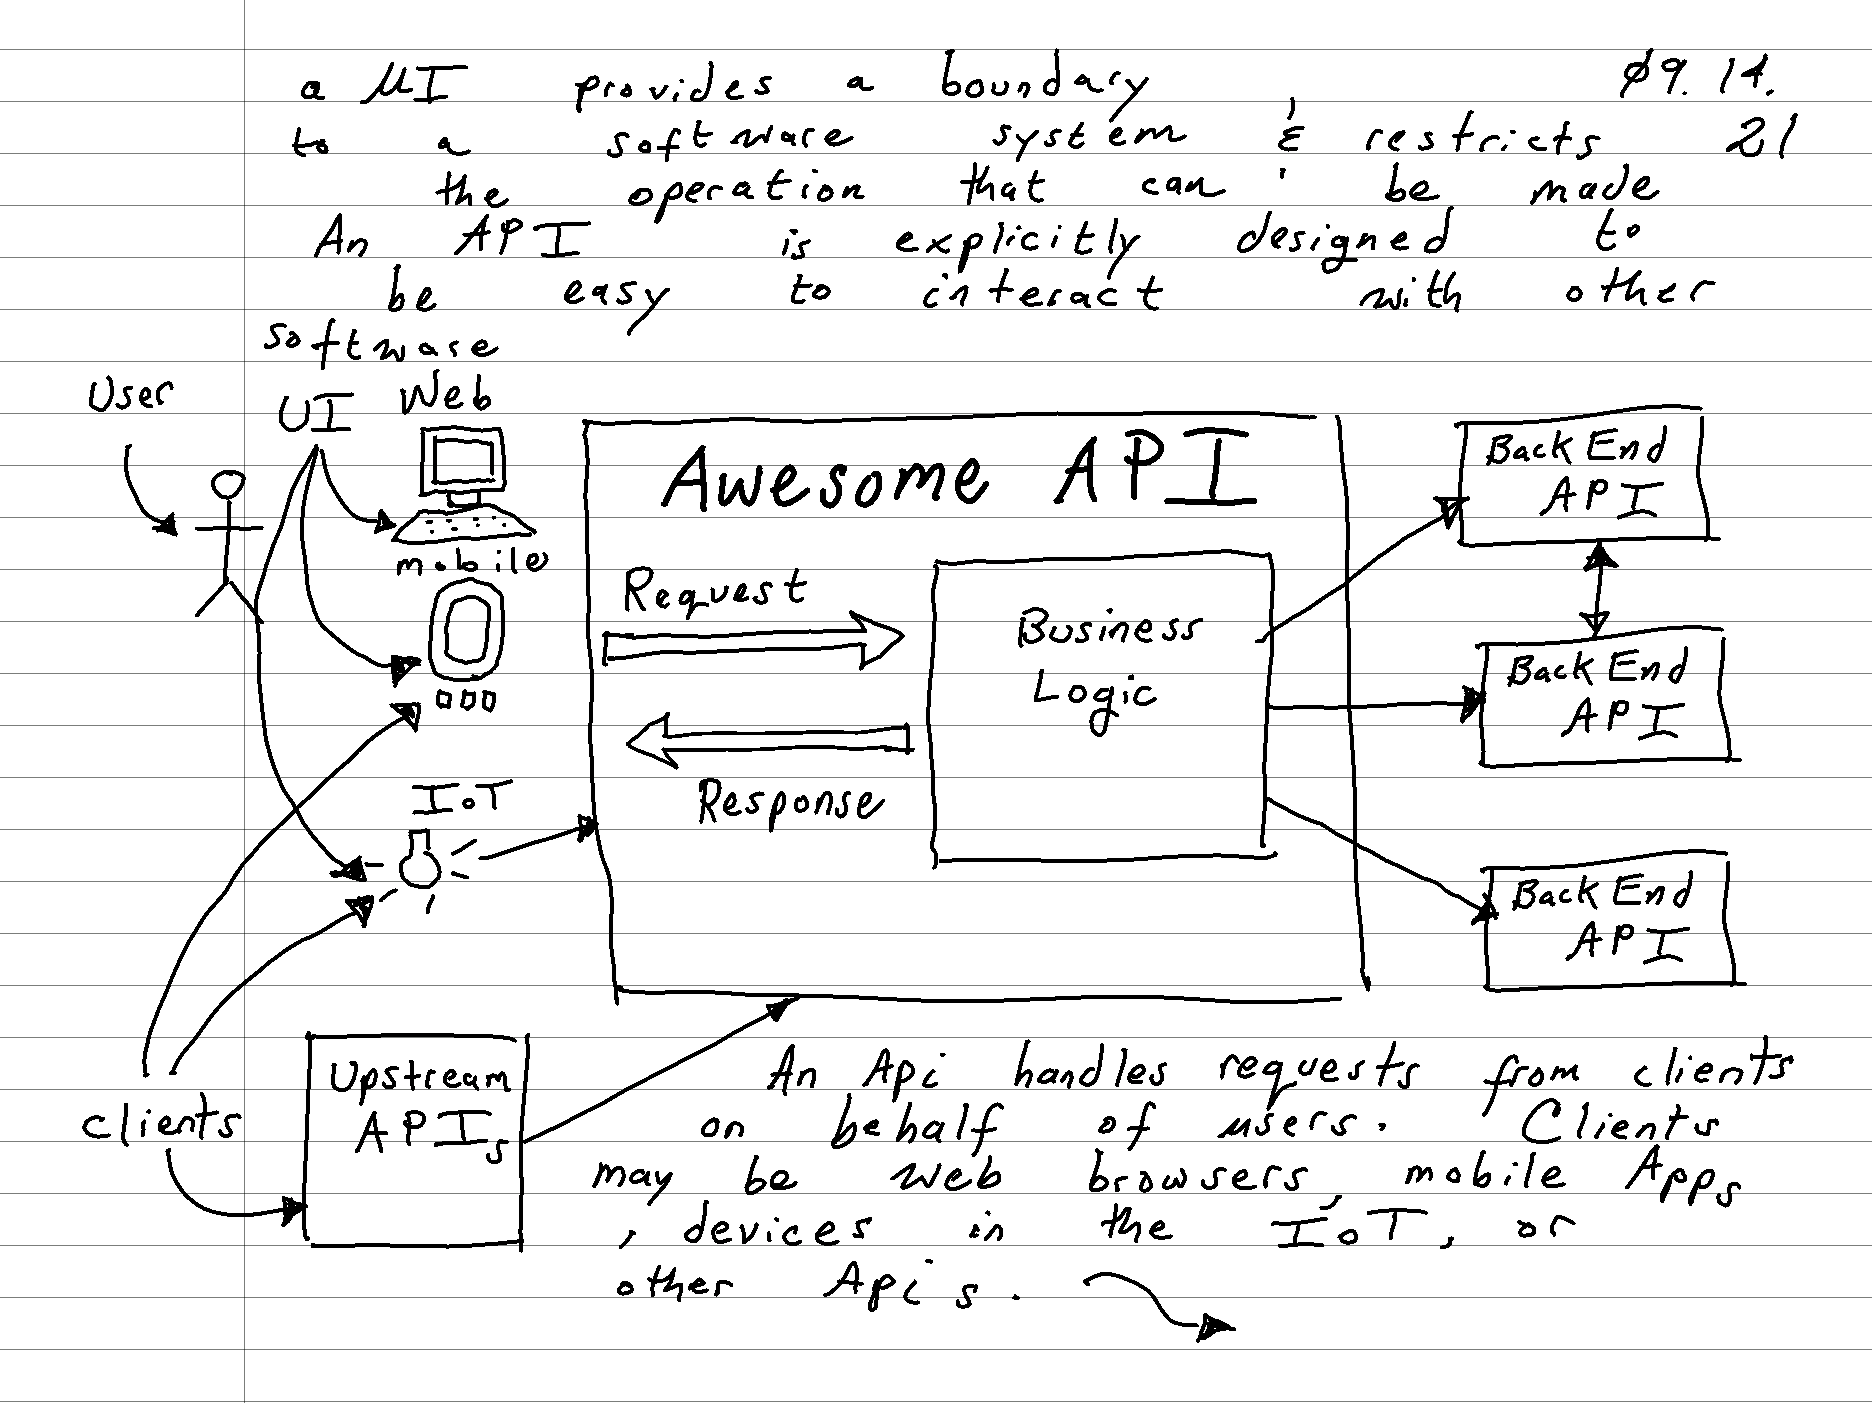 a UI provides a boundary
ø9. 14.
to a software system & restricts
21
the operation that can be made
An API is explicitly designed to
be easy to interact with other
software
User
UI
Web
mobile
IoT
clients
Upstream
APIs
Awesome API
Request
Response
Business
Logic
Back End
API
Back End
API
Back End
API
An Api handles requests from clients
on behalf of users. Clients
may be web browsers, mobile Apps
, devices in the IoT, or
other Api s.